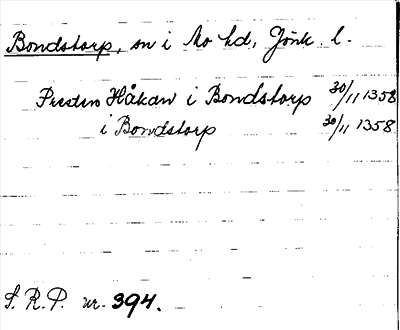 Bondstorp, sn i Mo hd, Jönk. l.
Presten Håkan i Bondstorp 30/11 1358
i Bondstorp 30/11 1358
S.R.P. nr. 394.